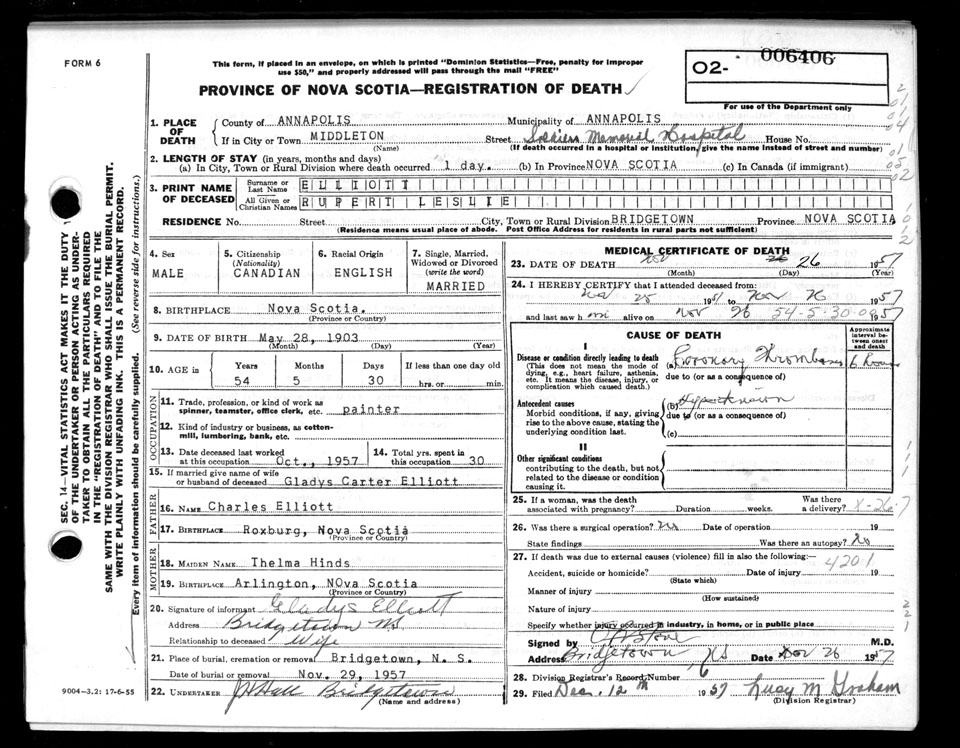 FORM 6
This form, if placed in an envelope, on which is printed "Dominion Statistics—Free, penalty for improper
use $50," and properly addressed will pass through the mail "FREE"
PROVINCE OF NOVA SCOTIA—REGISTRATION OF DEATH
O2- 006406
For use of the Department only
1. PLACE OF DEATH
County of ANNAPOLIS Municipality of ANNAPOLIS
If in City or Town MIDDLETON Street Soldiers Memorial Hospital House No.
(Name) (If death occurred in a hospital or institution, give the name instead of street and number)
2. LENGTH OF STAY (in years, months and days)
(a) In City, Town or Rural Division where death occurred 1 day. (b) In Province NOVA SCOTIA (c) In Canada (if immigrant)
3. PRINT NAME OF DECEASED
Surname or Last Name ELLIOTT
All Given or Christian Names RUPERT LESLIE
RESIDENCE No. Street City, Town or Rural Division BRIDGETOWN Province NOVA SCOTIA
(Residence means usual place of abode. Post Office Address for residents in rural parts not sufficient)
4. Sex
MALE
5. Citizenship
(Nationality)
CANADIAN
6. Racial Origin
ENGLISH
7. Single, Married,
Widowed or Divorced
(write the word)
MARRIED
8. BIRTHPLACE Nova Scotia.
(Province or Country)
9. DATE OF BIRTH May 28, 1903
(Month) (Day) (Year)
10. AGE in
Years Months Days If less than one day old
54 5 30 hrs. or min.
OCCUPATION
11. Trade, profession, or kind of work as
spinner, teamster, office clerk, etc. painter
12. Kind of industry or business, as cotton-
mill, lumbering, bank, etc.
13. Date deceased last worked
at this occupation Oct., 1957
14. Total yrs. spent in
this occupation 30
15. If married give name of wife
or husband of deceased Gladys Carter Elliott
FATHER
16. NAME Charles Elliott
17. BIRTHPLACE Roxburg, Nova Scotia
(Province or Country)
MOTHER
18. MAIDEN NAME Thelma Hinds
19. BIRTHPLACE Arlington, NOva Scotia
(Province or Country)
20. Signature of informant Gladys Elliott
Address Bridgetown N.S.
Relationship to deceased Wife
21. Place of burial, cremation or removal Bridgetown, N. S.
Date of burial or removal Nov. 29, 1957
22. UNDERTAKER Hall Bridgetown
(Name and address)
MEDICAL CERTIFICATE OF DEATH
23. DATE OF DEATH Nov 26 1957
(Month) (Day) (Year)
24. I HEREBY CERTIFY that I attended deceased from:
Nov 25 1957 to Nov 26 1957
and last saw him alive on Nov 26 1957
54-5-30
CAUSE OF DEATH
Approximate
interval between
onset
and death
I
Disease or condition directly leading to death
(This does not mean the mode of
dying, e.g., heart failure, asthenia,
etc. It means the disease, injury, or
complication which caused death.)
(a) Coronary Thrombosis 6 hours
due to (or as a consequence of)
Antecedent causes
Morbid conditions, if any, giving
rise to the above cause, stating the
underlying condition last.
(b)
due to (or as a consequence of)
(c)
II
Other significant conditions
contributing to the death, but not
related to the disease or condition
causing it.
25. If a woman, was the death
associated with pregnancy? Duration weeks. Was there
a delivery?
26. Was there a surgical operation? No Date of operation 19
State findings Was there an autopsy? No
27. If death was due to external causes (violence) fill in also the following:—
4201
Accident, suicide or homicide? Date of injury 19
(State which)
Manner of injury
(How sustained)
Nature of injury
Specify whether injury occurred in industry, in home, or in public place
Signed by M.D.
Address Bridgetown NS Date Nov 26 1957
28. Division Registrar's Record Number 6
29. Filed Dec. 12th 1957 Lucy M Graham
(Division Registrar)
SEC. 14—VITAL STATISTICS ACT MAKES IT THE DUTY
OF THE UNDERTAKER OR PERSON ACTING AS UNDER-
TAKER TO OBTAIN ALL THE PARTICULARS REQUIRED
IN THE "REGISTRATION OF DEATH" AND TO FILE THE
SAME WITH THE DIVISION REGISTRAR WHO SHALL ISSUE THE BURIAL PERMIT.
WRITE PLAINLY WITH UNFADING INK. THIS IS A PERMANENT RECORD.
Every item of information should be carefully supplied. (See reverse side for instructions.)
9004-3,2: 17-6-55